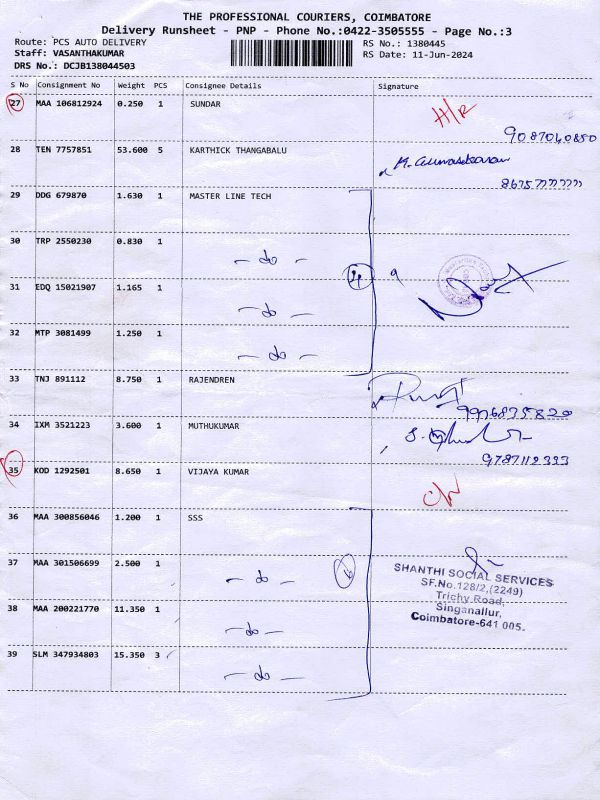 THE PROFESSIONAL COURIERS, COIMBATORE
Delivery Runsheet - PNP - Phone No.:0422-3505555 - Page No.:3
Route: PCS AUTO DELIVERY RS No.: 1380445
Staff: VASANTHAKUMAR RS Date: 11-Jun-2024
DRS No.: DCJB138044503
S No Consignment No Weight PCS Consignee Details Signature
27 MAA 106812924 0.250 1 SUNDAR
28 TEN 7757851 53.600 5 KARTHICK THANGABALU
29 DDG 679870 1.630 1 MASTER LINE TECH
30 TRP 2550230 0.830 1
- do -
31 EDQ 15021907 1.165 1
- do -
32 MTP 3081499 1.250 1
- do -
33 TNJ 891112 8.750 1 RAJENDREN
34 IXM 3521223 3.600 1 MUTHUKUMAR
9787112333
35 KOD 1292501 8.650 1 VIJAYA KUMAR
36 MAA 300856046 1.200 1 SSS
37 MAA 301506699 2.500 1
- do -
SHANTHI SOCIAL SERVICES
SF.No.128/2,(2249)
Trichy Road,
Singanallur,
Coimbatore-641 005.
38 MAA 200221770 11.350 1
- do -
39 SLM 347934803 15.350 3
- do -